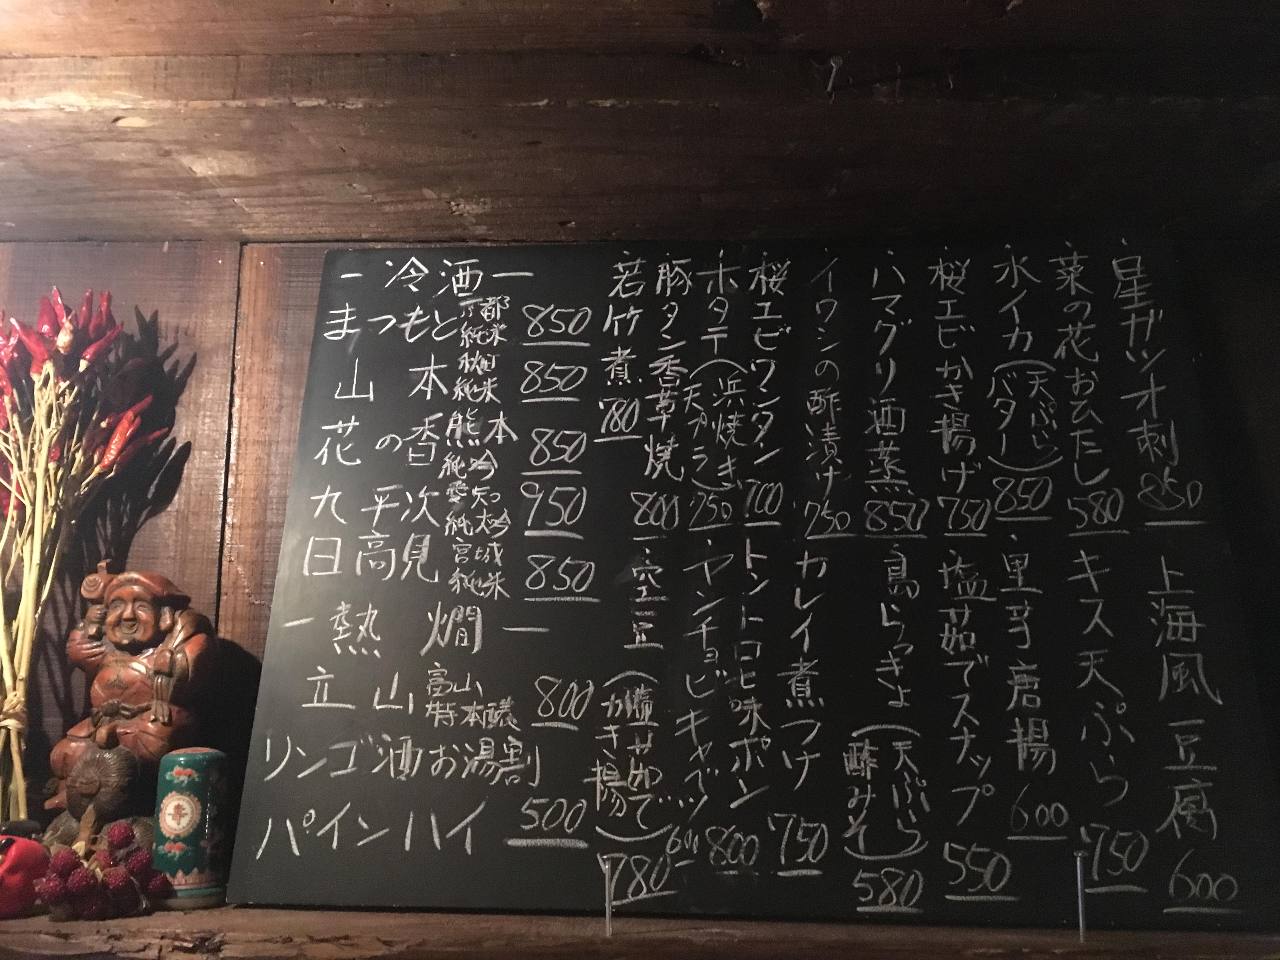 星ガツオ刺 850
菜の花おひたし 580
水イカ(天ぷら)(バター) 850
桜エビかき揚げ 750
ハマグリ酒蒸 850
イワシの酢漬け 750
桜エビワンタン 700
ホタテ(浜焼き)(天プラ) 250
豚タン香草焼 800
若竹煮 780
上海風豆腐 600
キス天ぷら 750
里芋唐揚 600
塩茹でスナップ 550
島らっきょ(天ぷら)(酢みそ) 580
カレイ煮つけ 750
トントロピリ味ポン 800
アンチョビキャベツ 600
空豆(塩茹で)(かき揚) 780
ー冷酒ー
まつもと 京都 純米 850
山本 秋田 純米 850
花の香 熊本 純吟 850
九平次 愛知 純大吟 950
日高見 宮城 純米 850
ー熱燗ー
立山 富山 特本醸 800
リンゴ酒お湯割
パインハイ 500
寿